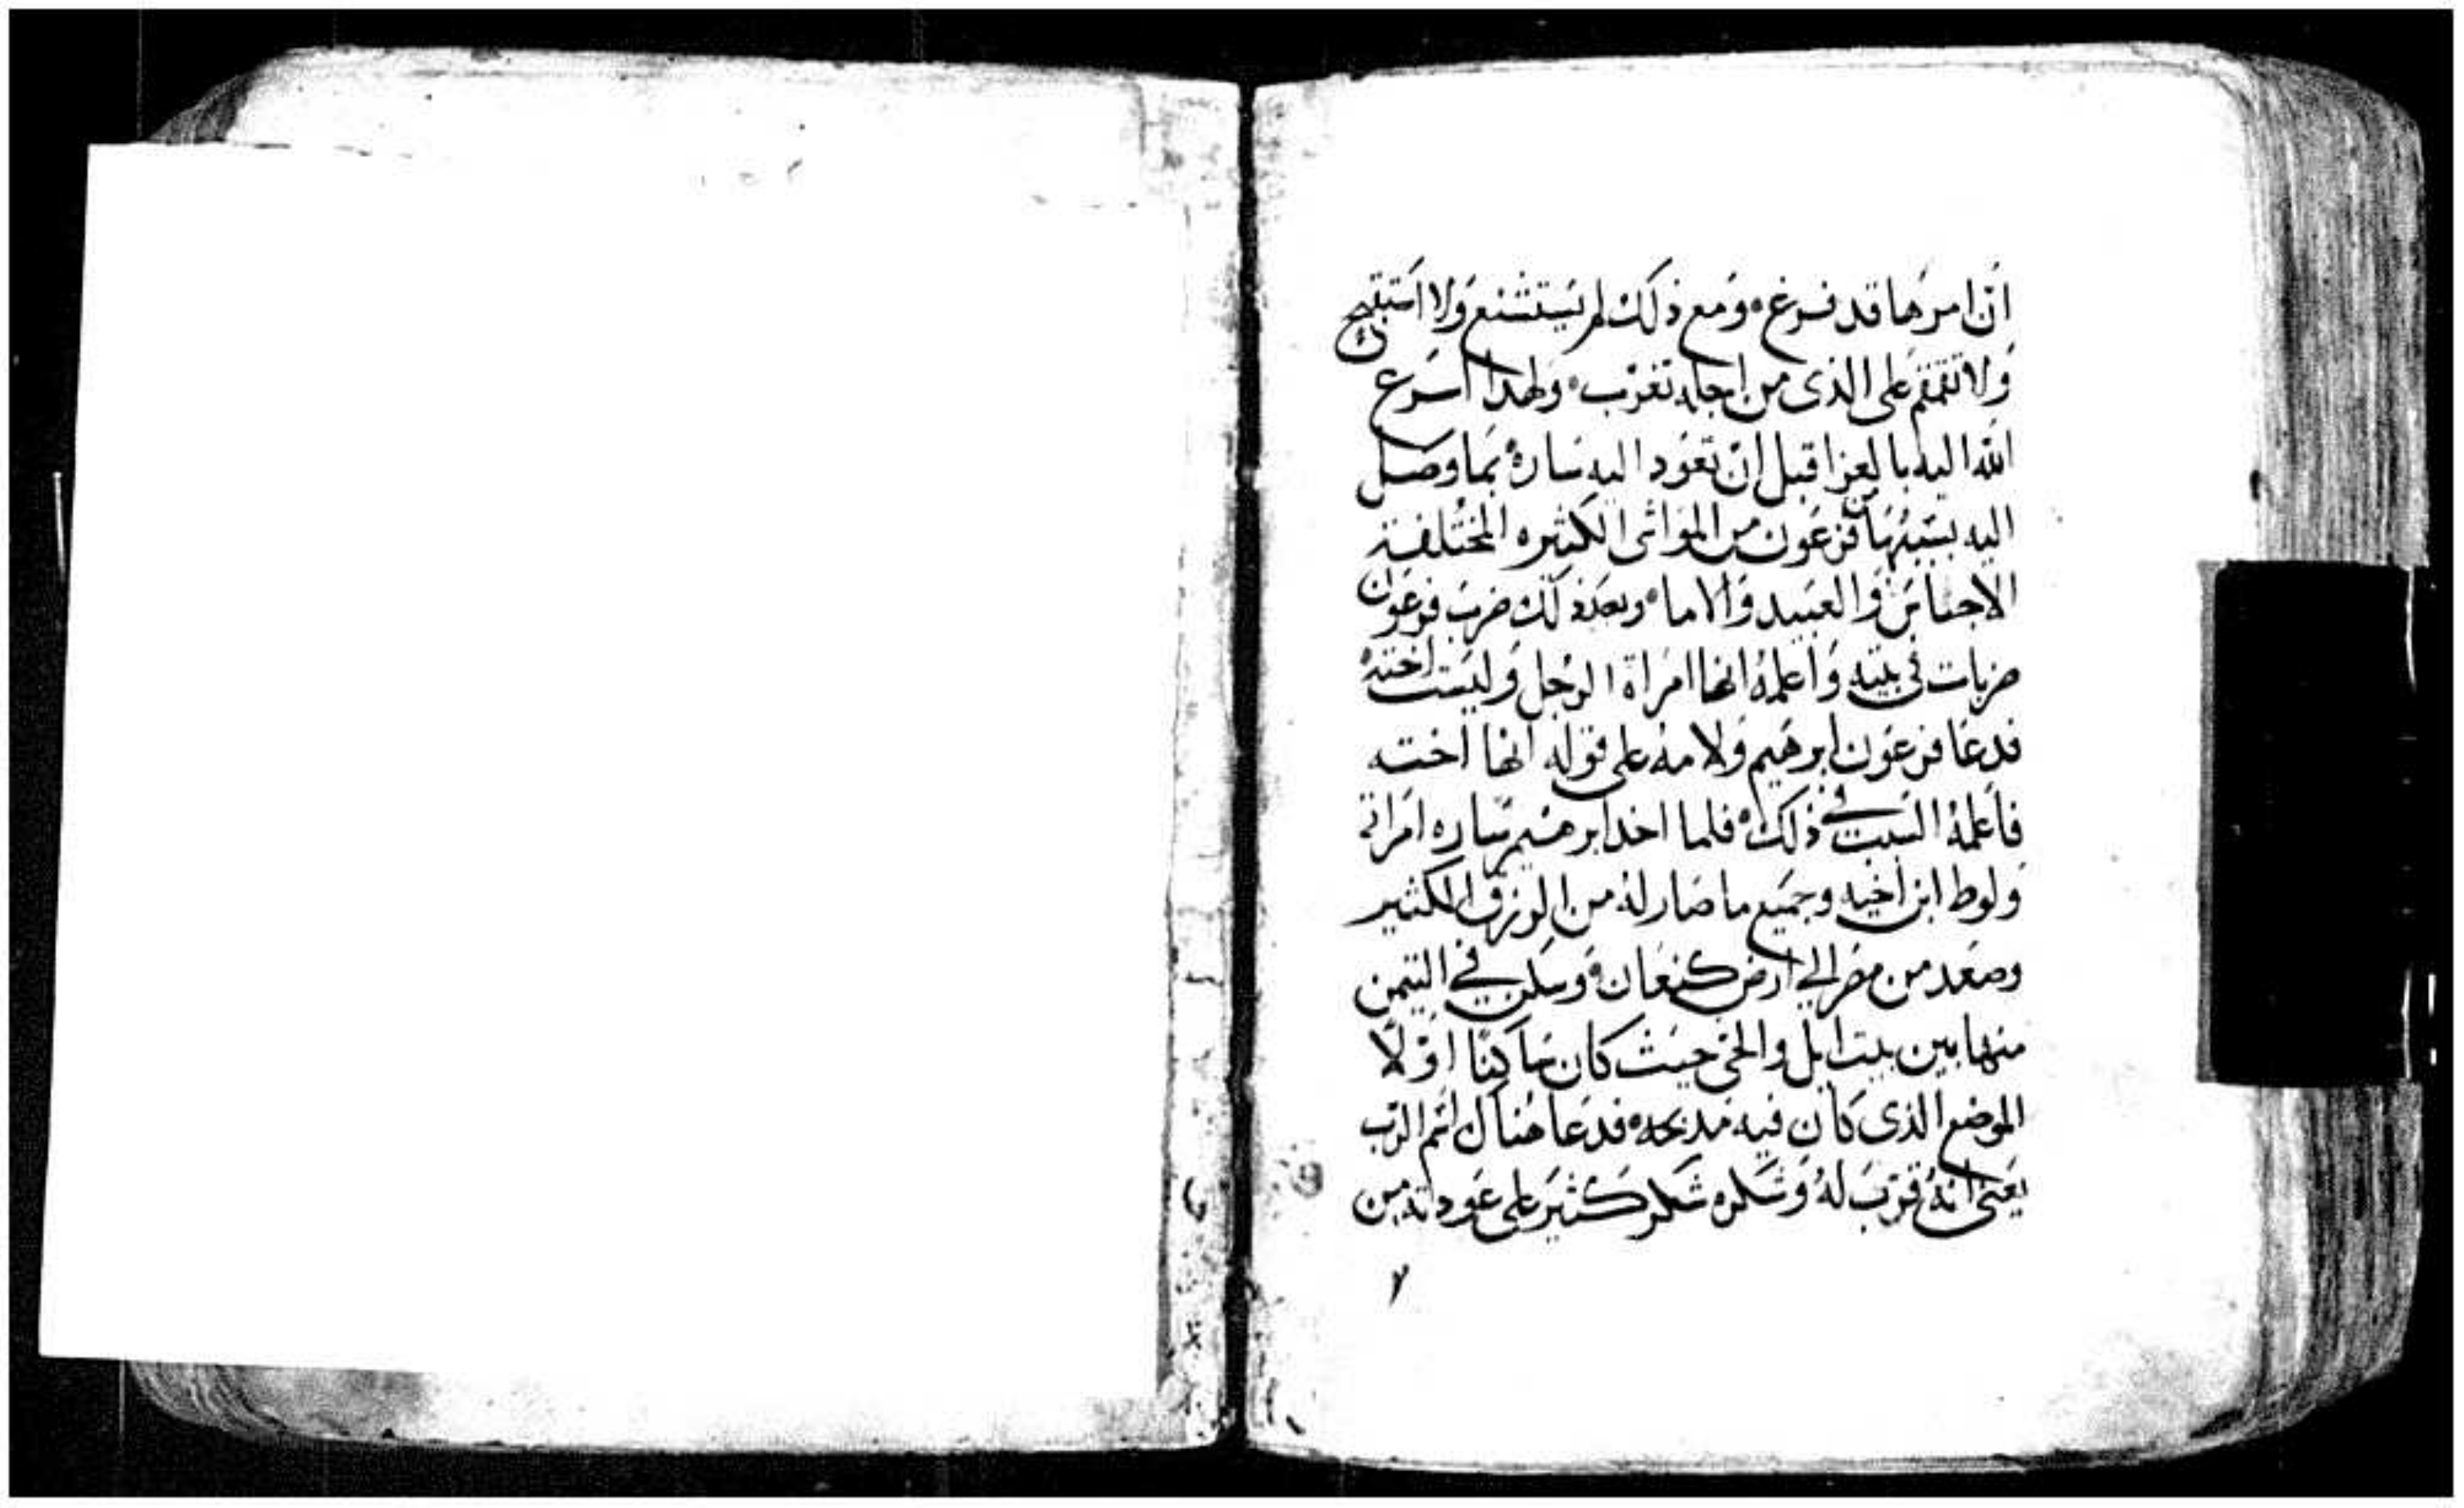 ان امرها قد فرغ ومع ذلك لم يستشنع ولا استقبح ذلك
ولا تقمقم على الذى من اجله تغرب ولهذا اسرع
الله اليه بالعزا قبل ان تعود اليه ساره بما وصل
اليه بسببها من فرعون من المواشى الكثيره المختلفة
الاجناس والعبيد والاما وبعد ذلك ضرب فرعون
ضربات في بيته واعلمه انها امراة الرجل وليست اخته
فدعا فرعون ابرهيم ولامه على قوله انها اخته
فاعلمه السبب في ذلك فلما اخذ ابرهيم ساره امراته
ولوط ابن اخيه وجميع ما صار له من الرزق الكثير
وصعد من مصر الي ارض كنعان وسكن في التيمن
منها بين بيت ايل والحى حيث كان ساكنا اولا
الموضع الذى كان فيه مدبحه فدعا هناك اسم الرب
يعنى انه قرب له وشكره شكر كثير على عودته من
٧